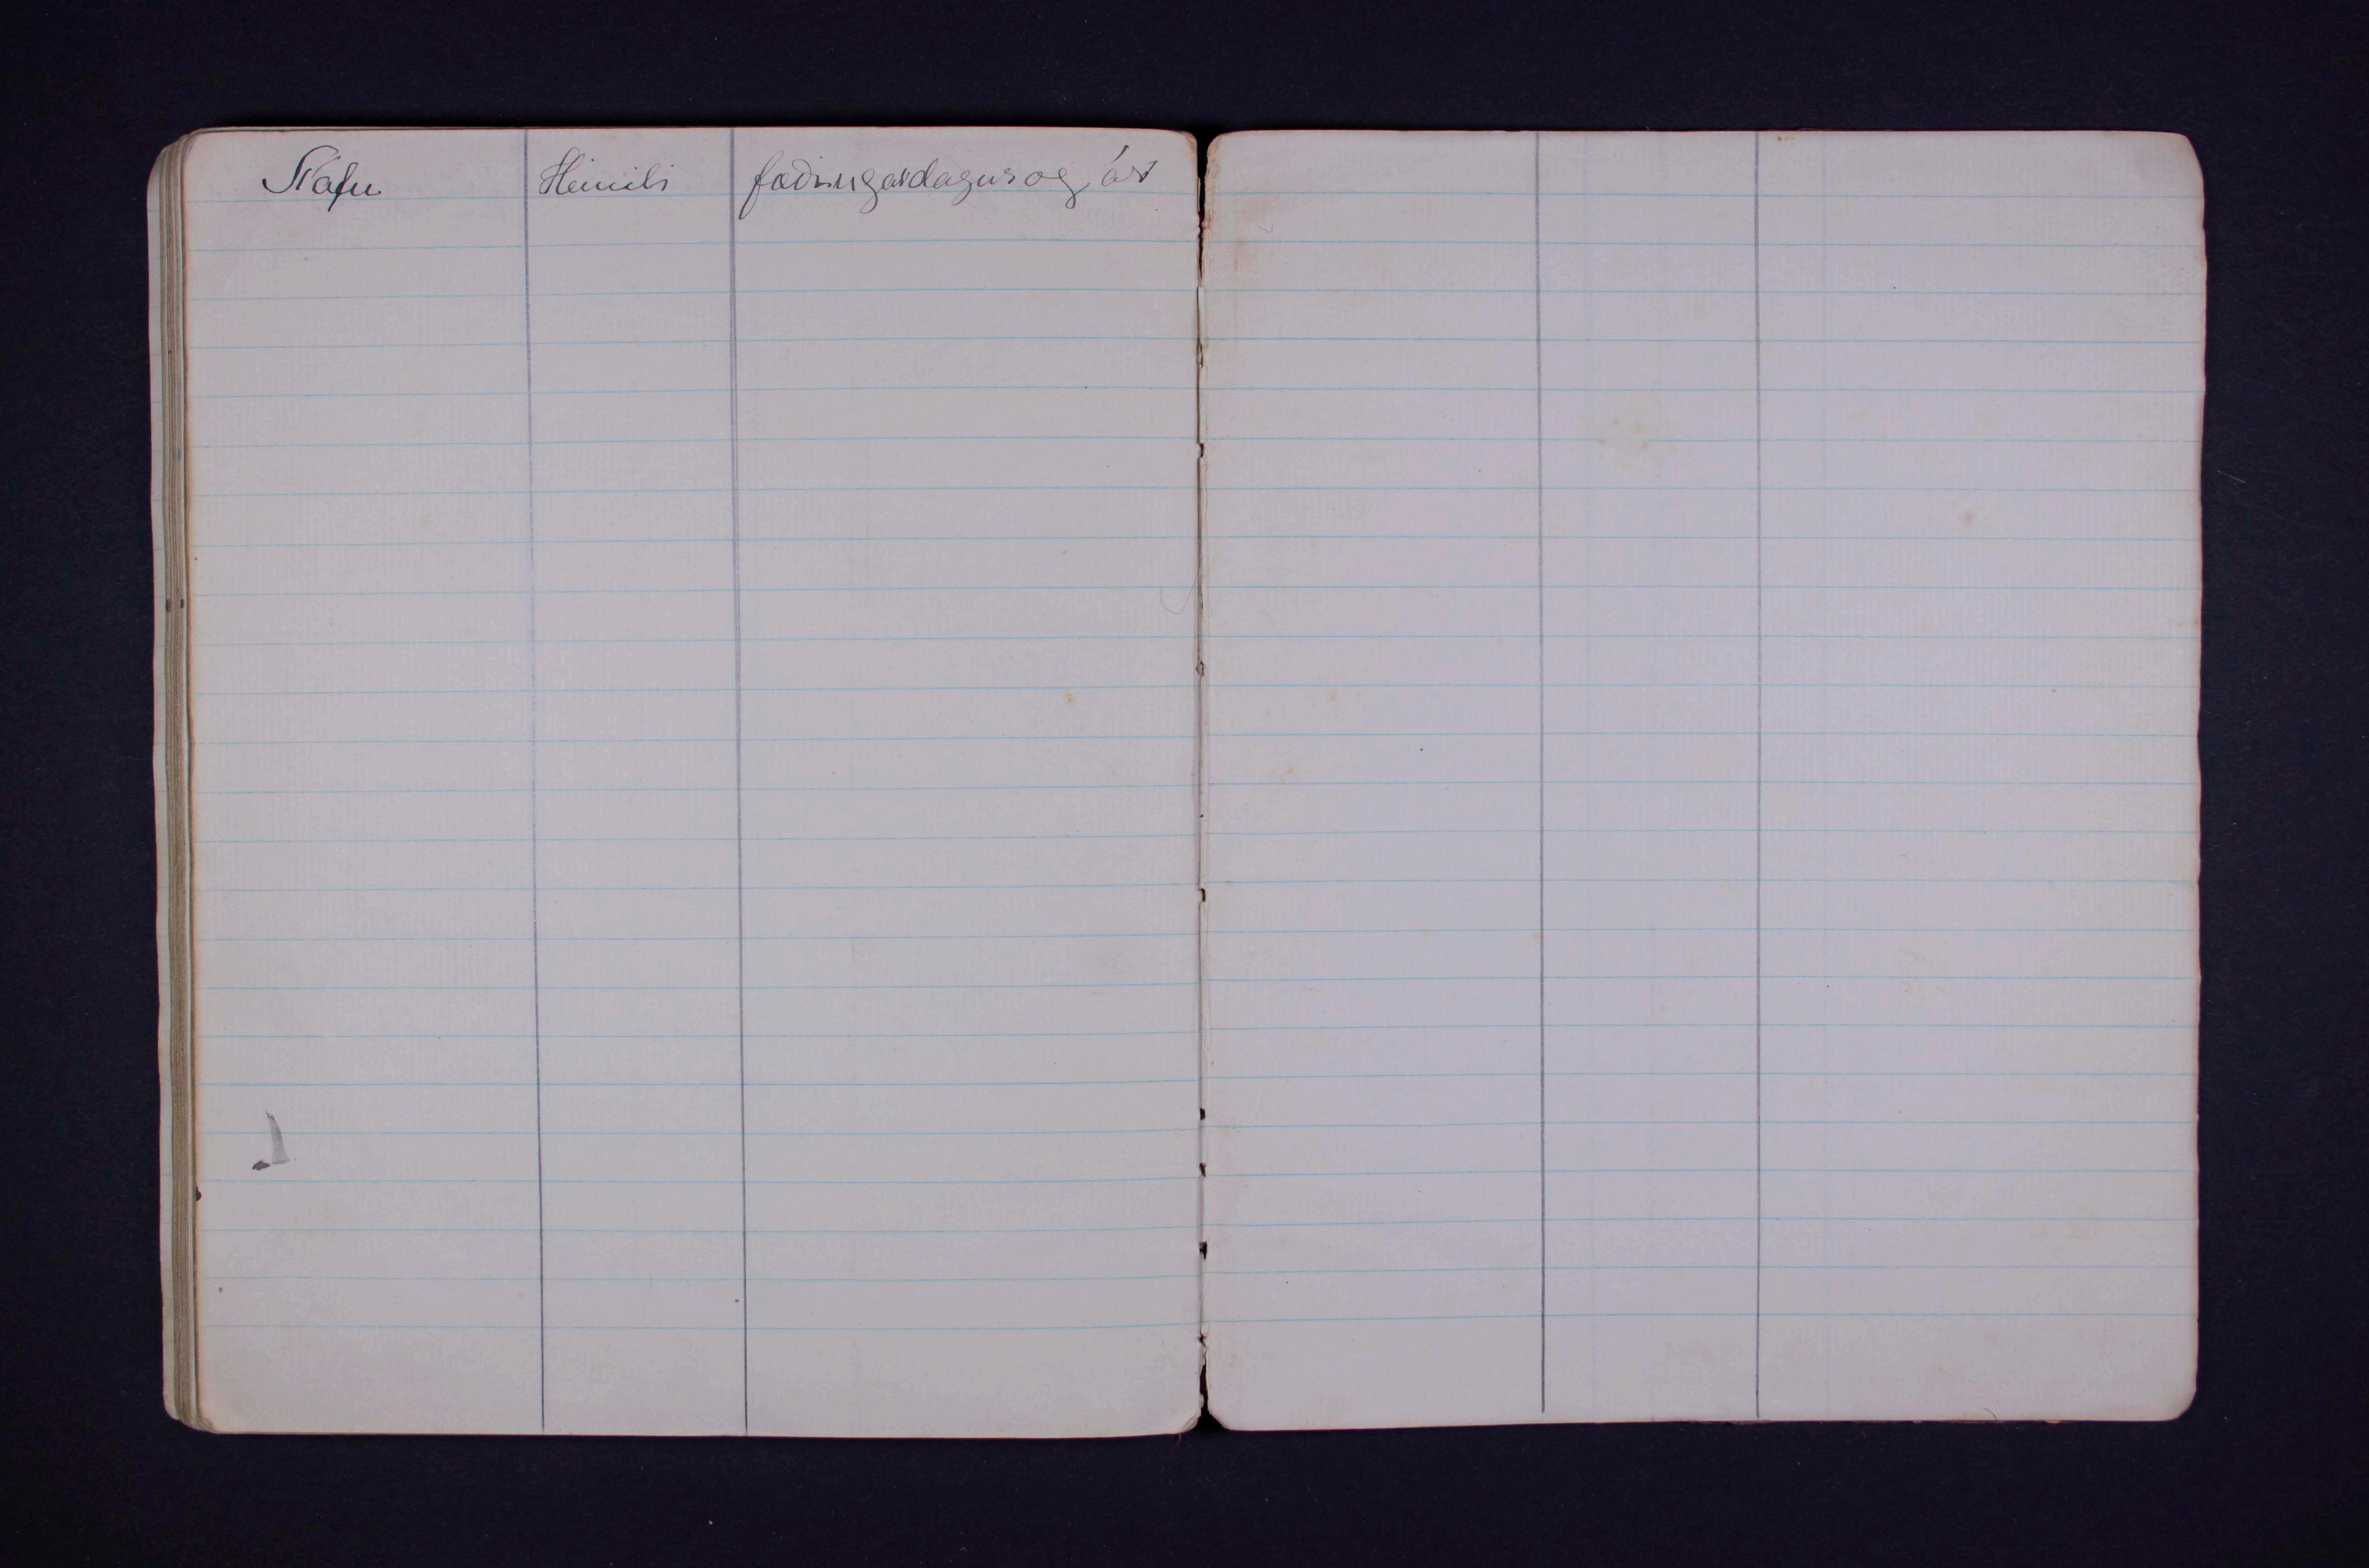 Nöfn Heimili fæðingardagur og ár